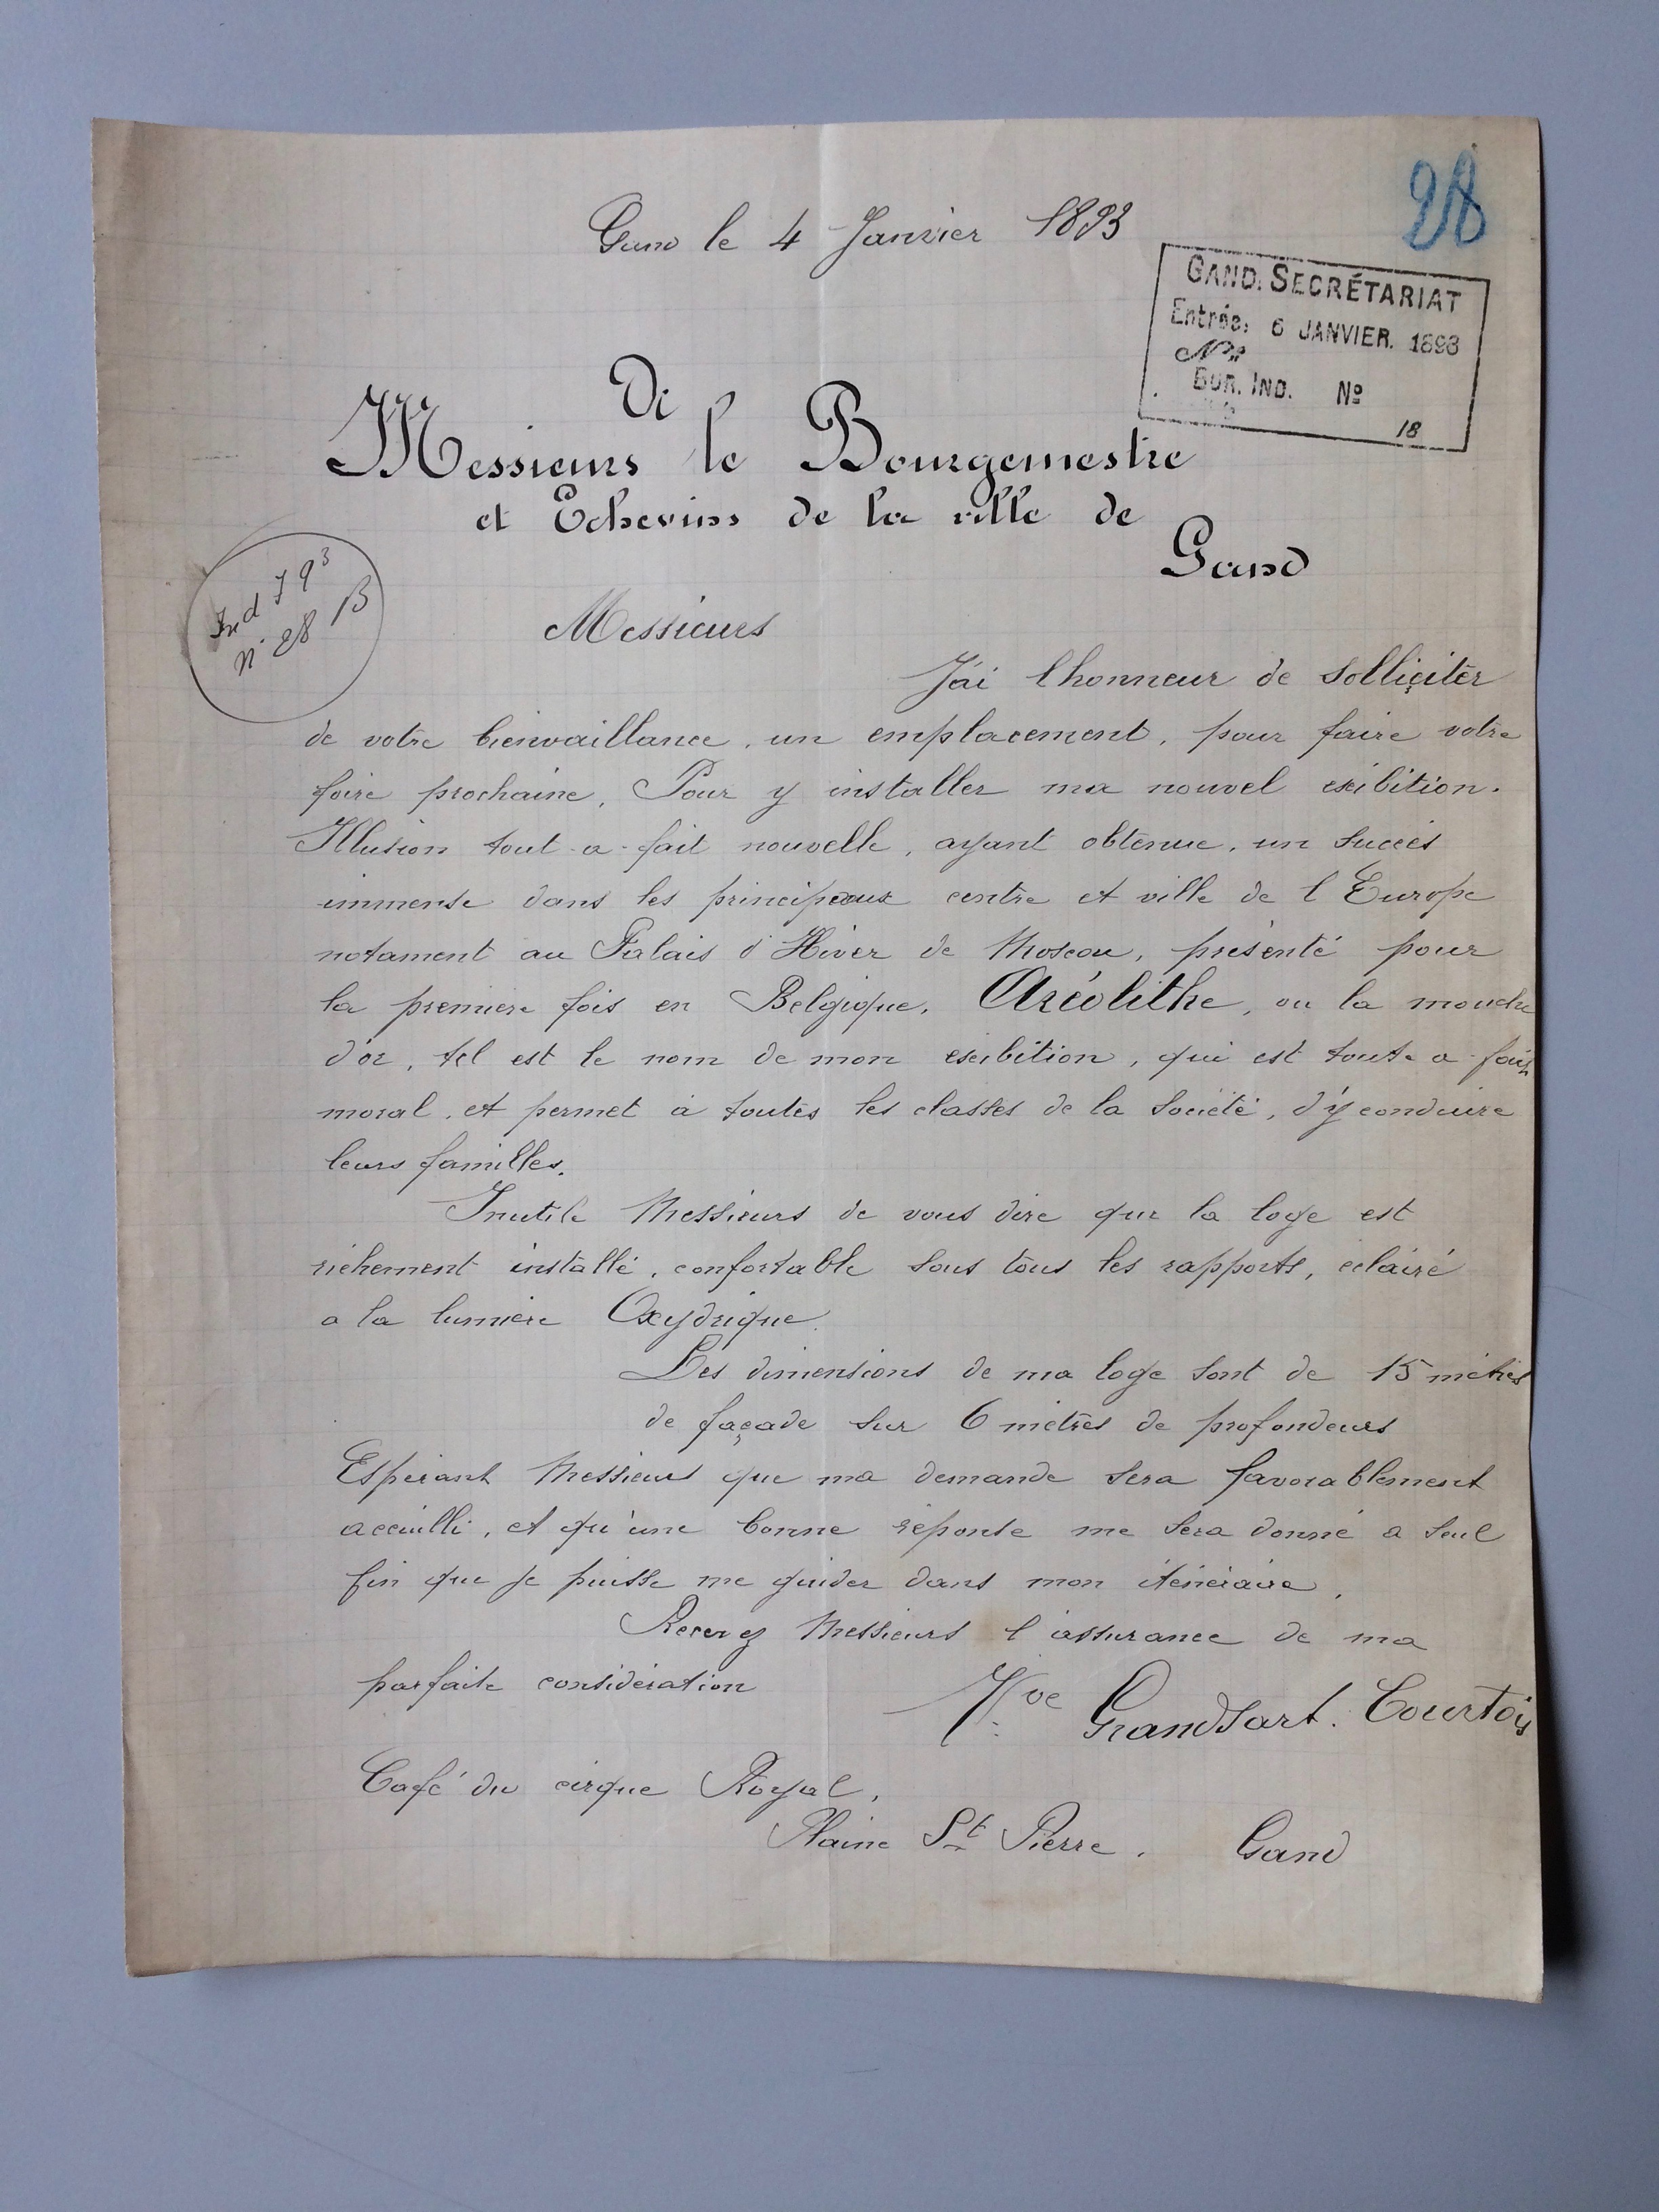 28
Gand le 4 Janvier 1893
GAND. SECRÉTARIAT
Entrée: 6 JANVIER. 1893
BUR. IND. Nº
18
Messieurs le Bourgemestre
et Echevins de la ville de
Gand
Ind J 93
N° 28 B
Messieurs
J'ai l honneur de solliçiter
de votre bienvaillance, un emplacement, pour faire votre
foire prochaine, Pour y installer ma nouvel exibition.
Illusion tout-a-fait nouvelle, ayant obtenue, un succés
immense dans les principeaux centre et ville de l Europe
notament au Palais d'Hiver de Moscou, présenté pour
la premiere fois en Belgique, Aréolithe, ou la mouche
d'or, tel est le nom de mon exibition, qui est toute a fait
moral, et permet à toutes les classes de la société, d'y conduire
leurs familles.
Inutile Messieurs de vous dire que la loge est
richement installé, confortable sous tous les rapports, eclairé
a la lumière Oxydrique.
Les dimensions de ma loge sont de 15 mètres
de façade sur 6 mètres de profondeurs
Espérant Messieurs que ma demande sera favorablement
acceuilli, et qu'une bonne réponse me sera donné a seul
fin que je puisse me guider dans mon iténéraire.
Recevez Messieurs l'assurance de ma
parfaite considération
Vve Grandsart. Courtois
Café du cirque Royal,
Plaine St Pierre. Gand